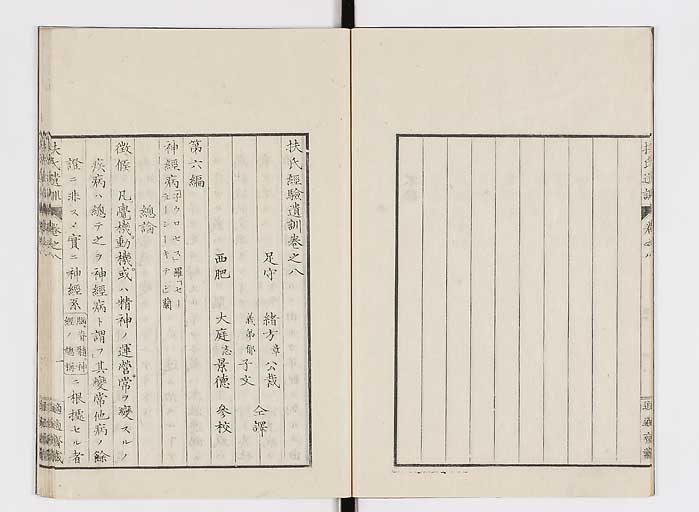 扶氏經驗遺訓卷之八
足守 緒方章公裁
義弟郁子文 仝譯
西肥 大庭忞景德 參校
第六編
神經病
總論
徵候 凡覺機動機或ハ精神ノ運營常ヲ變スルノ
疾病ハ總テ之ヲ神經病ト謂フ其變常他病ノ餘
證ニ非スメ實ニ神經系
腦脊髓神
經ノ總稱
ニ根據セル者
扶氏遺訓 卷之八
一
適適齋藏